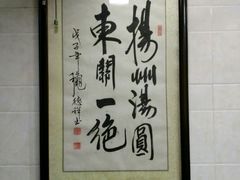 揚州湯圓
東關一絕
戊子年
德祥書